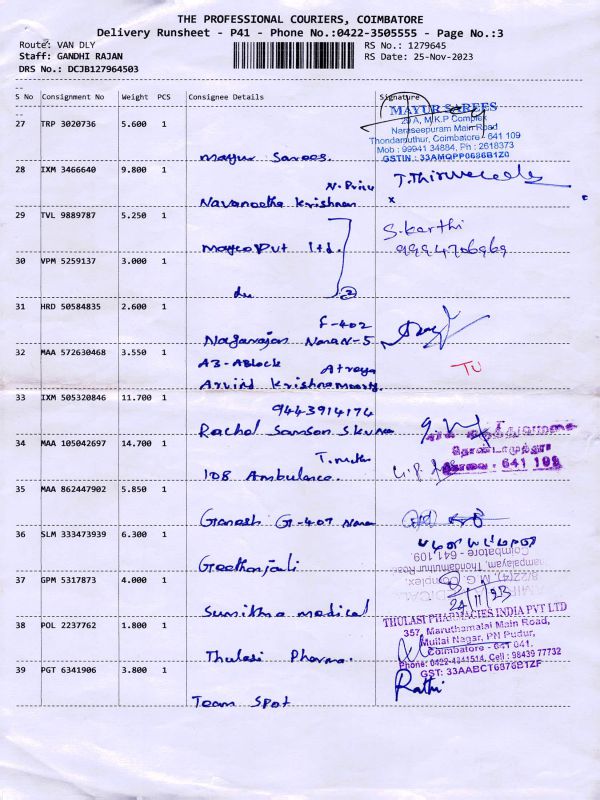 THE PROFESSIONAL COURIERS, COIMBATORE
Delivery Runsheet - P41 - Phone No.:0422-3505555 - Page No.:3
Route: VAN DLY
RS No.: 1279645
Staff: GANDHI RAJAN
RS Date: 25-Nov-2023
DRS No.: DCJB127964503
S No Consignment No Weight PCS Consignee Details Signature
27 TRP 3020736 5.600 1
MAYUR SAREES
29 A, M.K.P Complex
Naraseepuram Main Road
Thondamuthur, Coimbatore - 641 109
Mob : 99941 34884, Ph : 2618373
GSTIN : 33AMQPP0686B1Z0
Mayur Sarees.
28 IXM 3466640 9.800 1
Navaneetha Krishnan
x
29 TVL 9889787 5.250 1
S.karthi
9994706969
Mayco Pvt ltd.
30 VPM 5259137 3.000 1
du 2
31 HRD 50584835 2.600 1
F-402
Nagarajan Nana N-5
32 MAA 572630468 3.550 1
A3-ABlock Atraya
Arvind Krishnamoorthy
33 IXM 505320846 11.700 1
9443914174
Rachel Samson S.kuma
34 MAA 105042697 14.700 1
தொண்டாமுத்தூர்
கோவை - 641 109
108 Ambulance
35 MAA 862447902 5.850 1
Ganesh G-407 Nana
36 SLM 333473939 6.300 1
Coimbatore - 641 109.
Geethanjali
37 GPM 5317873 4.000 1
8/22(4), M. G. Complex,
24/11/23
Sumithra medical
38 POL 2237762 1.800 1
THULASI PHARMACIES INDIA PVT LTD
357, Maruthamalai Main Road,
Mullai Nagar, PN Pudur,
Coimbatore - 641 041.
Phone: 0422-4341514, Cell : 98439 77732
GST: 33AABCT6876B1ZF
Thulasi Pharma.
39 PGT 6341906 3.800 1
Rathi
Team Spot